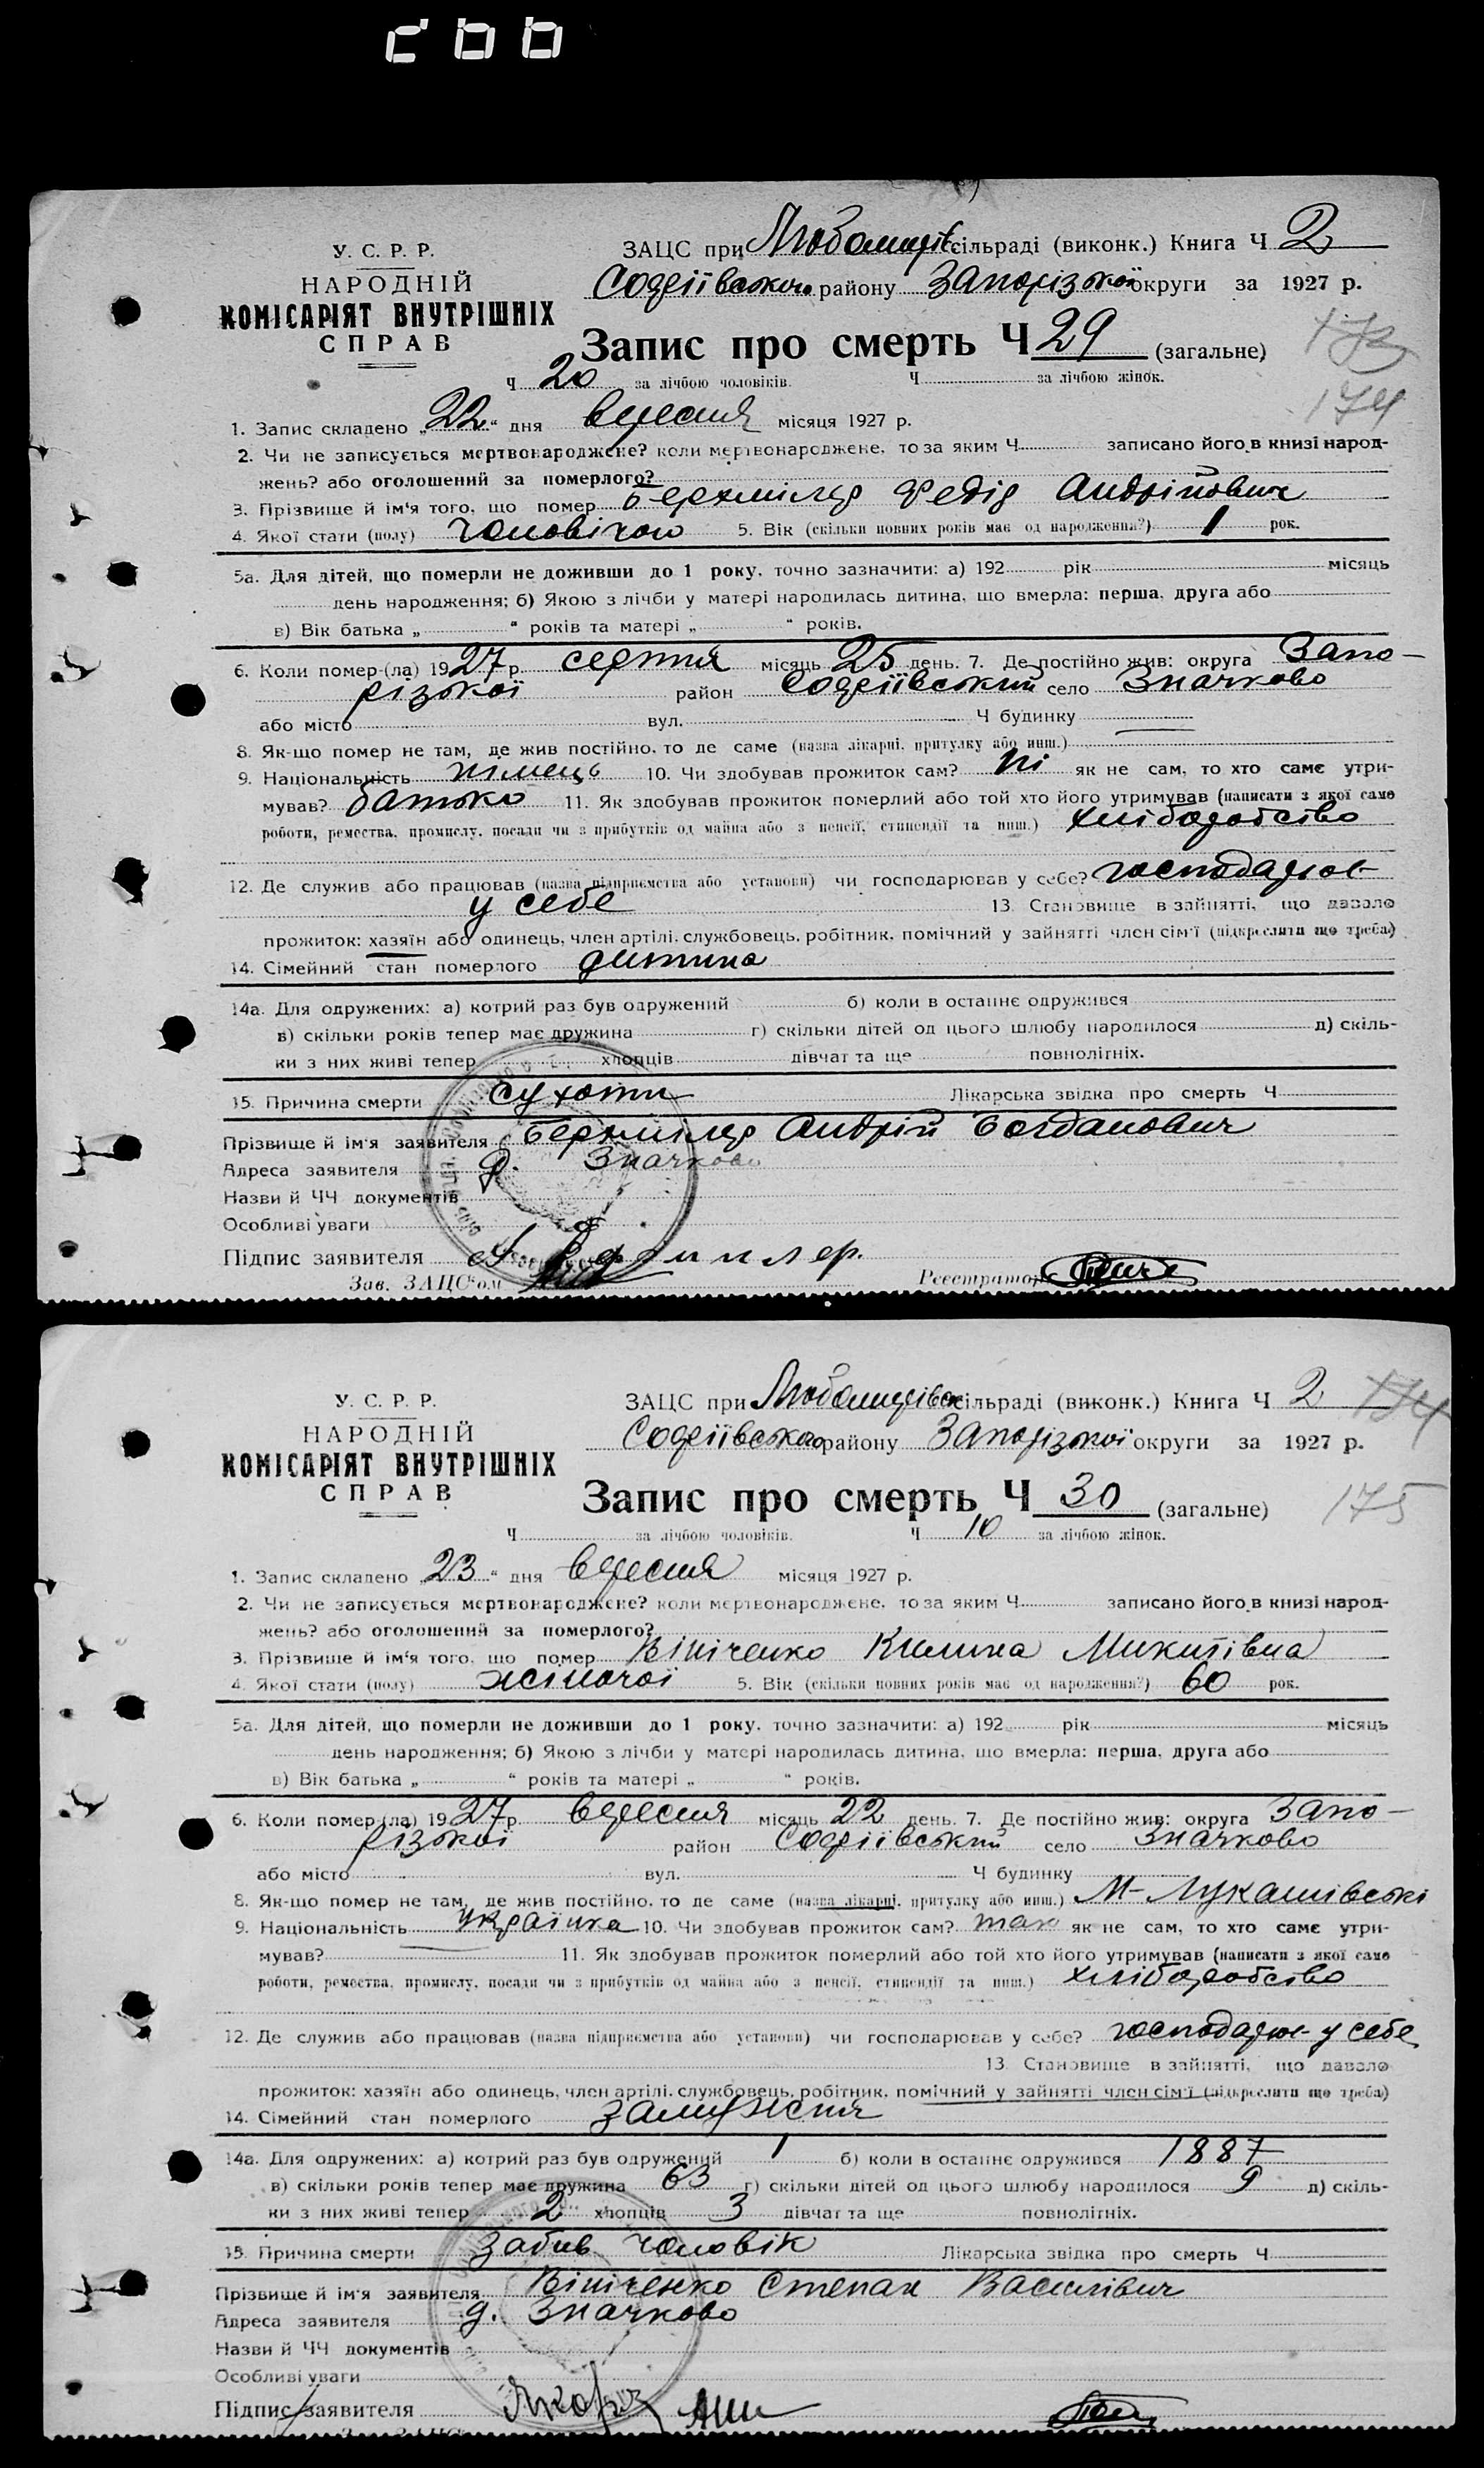 У. С. Р. Р.
НАРОДНІЙ
КОМІСАРІЯТ ВНУТРІШНІХ
СПРАВ
ЗАЦС при Любомирів сільраді (виконк.) Книга Ч 2
Софіївського району Запорізької округи за 1927 р.
Запис про смерть Ч 29 (загальне)
173
174
Ч 20 за лічбою чоловіків. Ч за лічбою жінок.
1. Запис складено „22“ дня вересня місяця 1927 р.
2. Чи не записується мертвонароджене? коли мертвонароджене, то за яким Ч записано його в книзі народ-
жень? або оголошений за померлого?
3. Прізвище й ім'я того, що помер Бермілер Федір Андрійович
4. Якої стати (полу) чоловічою 5. Вік (скільки повних років має од народження?) 1 рок.
5а. Для дітей, що померли не доживши до 1 року, точно зазначити: а) 192 рік місяць
день народження; б) Якою з лічби у матері народилась дитина, що вмерла: перша, друга або
в) Вік батька „ “ років та матері „ “ років.
6. Коли помер (ла) 1927 р. серпня місяць 25 день. 7. Де постійно жив: округа Запо-
різької район Софіївський село Значково
або місто вул. Ч будинку
8. Як-що помер не там, де жив постійно, то де саме (назва лікарні, притулку або инш.)
9. Національність німець 10. Чи здобував прожиток сам? ні як не сам, то хто саме утри-
мував? батько 11. Як здобував прожиток померлий або той хто його утримував (написати з якої саме
роботи, ремества, промислу, посади чи з прибутків од майна або з пенсії, стипендії та инш.) хліборобство
12. Де служив або працював (назва підприємства або установи) чи господарював у себе? господарюв
у себе 13. Становище в зайнятті, що давало
прожиток: хазяїн або одинець, член артілі, службовець, робітник, помічний у зайнятті член сім'ї (підкреслити що треба)
14. Сімейний стан померлого дитина
14а. Для одружених: а) котрий раз був одружений б) коли в останнє одружився
в) скільки років тепер має дружина г) скільки дітей од цього шлюбу народилося д) скіль-
ки з них живі тепер хлопців дівчат та ще повнолітніх.
15. Причина смерти сухоти Лікарська звідка про смерть Ч
Прізвище й ім'я заявителя Бермілер Андрій Богданович
Адреса заявителя д. Значково
Назви й ЧЧ документів
Особливі уваги
Підпис заявителя
Зав. ЗАЦС'ом Реєстратор
У. С. Р. Р.
НАРОДНІЙ
КОМІСАРІЯТ ВНУТРІШНІХ
СПРАВ
ЗАЦС при Любомирівск сільраді (виконк.) Книга Ч 2
174
Софіївського району Запорізької округи за 1927 р.
Запис про смерть Ч 30 (загальне)
175
Ч за лічбою чоловіків. Ч 10 за лічбою жінок.
1. Запис складено „23“ дня вересня місяця 1927 р.
2. Чи не записується мертвонароджене? коли мертвонароджене, то за яким Ч записано його в книзі народ-
жень? або оголошений за померлого?
3. Прізвище й ім'я того, що помер Вініченко Килина Микитівна
4. Якої стати (полу) жіночої 5. Вік (скільки повних років має од народження?) 60 рок.
5а. Для дітей, що померли не доживши до 1 року, точно зазначити: а) 192 рік місяць
день народження; б) Якою з лічби у матері народилась дитина, що вмерла: перша, друга або
в) Вік батька „ “ років та матері „ “ років.
6. Коли помер (ла) 1927 р. вересня місяць 22 день. 7. Де постійно жив: округа Запо-
різької район Софіївський село Значково
або місто вул. Ч будинку
8. Як-що помер не там, де жив постійно, то де саме (назва лікарні, притулку або инш.) М-Лукашівські
9. Національність українка 10. Чи здобував прожиток сам? так як не сам, то хто саме утри-
мував? 11. Як здобував прожиток померлий або той хто його утримував (написати з якої саме
роботи, ремества, промислу, посади чи з прибутків од майна або з пенсії, стипендії та инш.) хліборобство
12. Де служив або працював (назва підприємства або установи) чи господарював у себе? господарює у себе
13. Становище в зайнятті, що давало
прожиток: хазяїн або одинець, член артілі, службовець, робітник, помічний у зайнятті член сім'ї (підкреслити що треба)
14. Сімейний стан померлого замужня
14а. Для одружених: а) котрий раз був одружений 1 б) коли в останнє одружився 1887
в) скільки років тепер має дружина 63 г) скільки дітей од цього шлюбу народилося 9 д) скіль-
ки з них живі тепер 2 хлопців 3 дівчат та ще повнолітніх.
15. Причина смерти забив чоловік Лікарська звідка про смерть Ч
Прізвище й ім'я заявителя Вініченко Степан Васильович
Адреса заявителя д. Значково
Назви й ЧЧ документів
Особливі уваги
Підпис заявителя